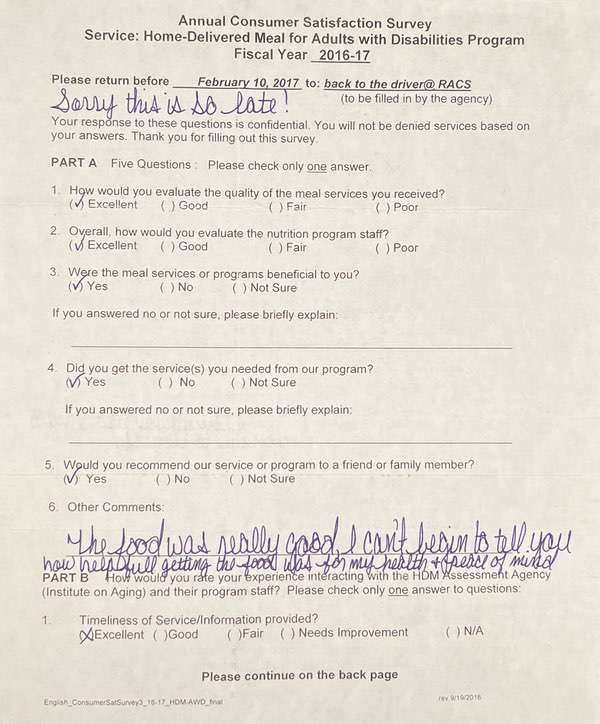 Annual Consumer Satisfaction Survey
Service: Home-Delivered Meal for Adults with Disabilities Program
Fiscal Year 2016-17
Please return before February 10, 2017 to: back to the driver@ RACS
Sorry this is so late!
(to be filled in by the agency)
Your response to these questions is confidential. You will not be denied services based on
your answers. Thank you for filling out this survey.
PART A Five Questions : Please check only one answer.
1. How would you evaluate the quality of the meal services you received?
(✓) Excellent ( ) Good ( ) Fair ( ) Poor
2. Overall, how would you evaluate the nutrition program staff?
(✓) Excellent ( ) Good ( ) Fair ( ) Poor
3. Were the meal services or programs beneficial to you?
(✓) Yes ( ) No ( ) Not Sure
If you answered no or not sure, please briefly explain:
4. Did you get the service(s) you needed from our program?
(✓) Yes ( ) No ( ) Not Sure
If you answered no or not sure, please briefly explain:
5. Would you recommend our service or program to a friend or family member?
(✓) Yes ( ) No ( ) Not Sure
6. Other Comments:
The food was really good, I can't begin to tell you
how helpfull getting the food was for my health + peace of mind
PART B How would you rate your experience interacting with the HDM Assessment Agency
(Institute on Aging) and their program staff? Please check only one answer to questions:
1. Timeliness of Service/Information provided?
(X)Excellent ( )Good ( )Fair ( ) Needs Improvement ( ) N/A
Please continue on the back page
English_ConsumerSatSurvey3_16-17_HDM-AWD_final
rev 9/19/2016